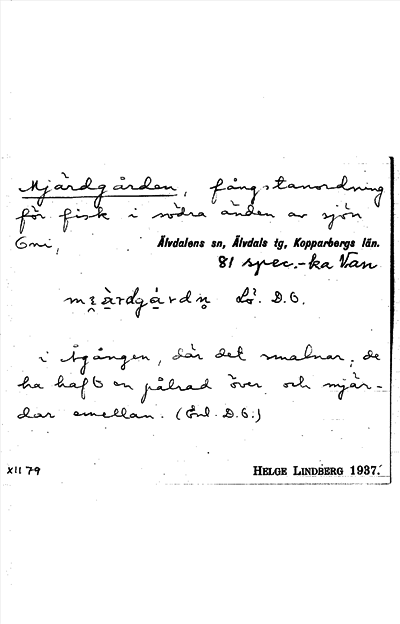 Mjärdgården, fångstanordning
för fisk i södra änden av sjön
Gni, Älvdalens sn, Älvdals tg, Kopparbergs län.
81 spec.-ka Van
Lå. D.O.
i Ågången, där det smalnar; de
ha haft en pålrad över och mjär-
dar emellan. (Enl. D.O:)
XII 79 HELGE LINDBERG 1937.